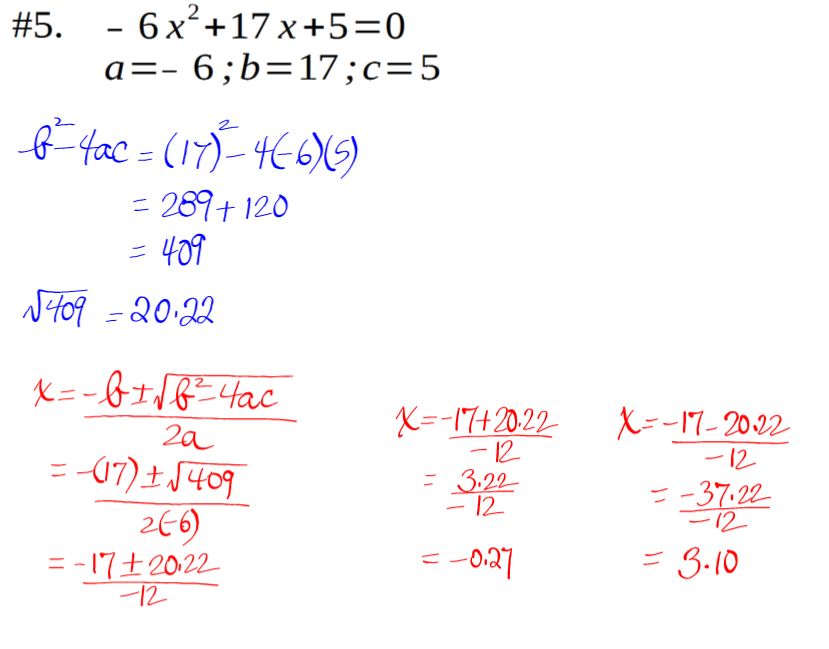 #5. - 6x²+17x+5=0
a=- 6;b=17;c=5
b²-4ac = (17)²-4(-6)(5)
= 289+120
= 409
√409 = 20.22
x = -b±√b²-4ac / 2a
= -(17)±√409 / 2(-6)
= -17±20.22 / -12
x = -17+20.22 / -12
= 3.22 / -12
= -0.27
x = -17-20.22 / -12
= -37.22 / -12
= 3.10